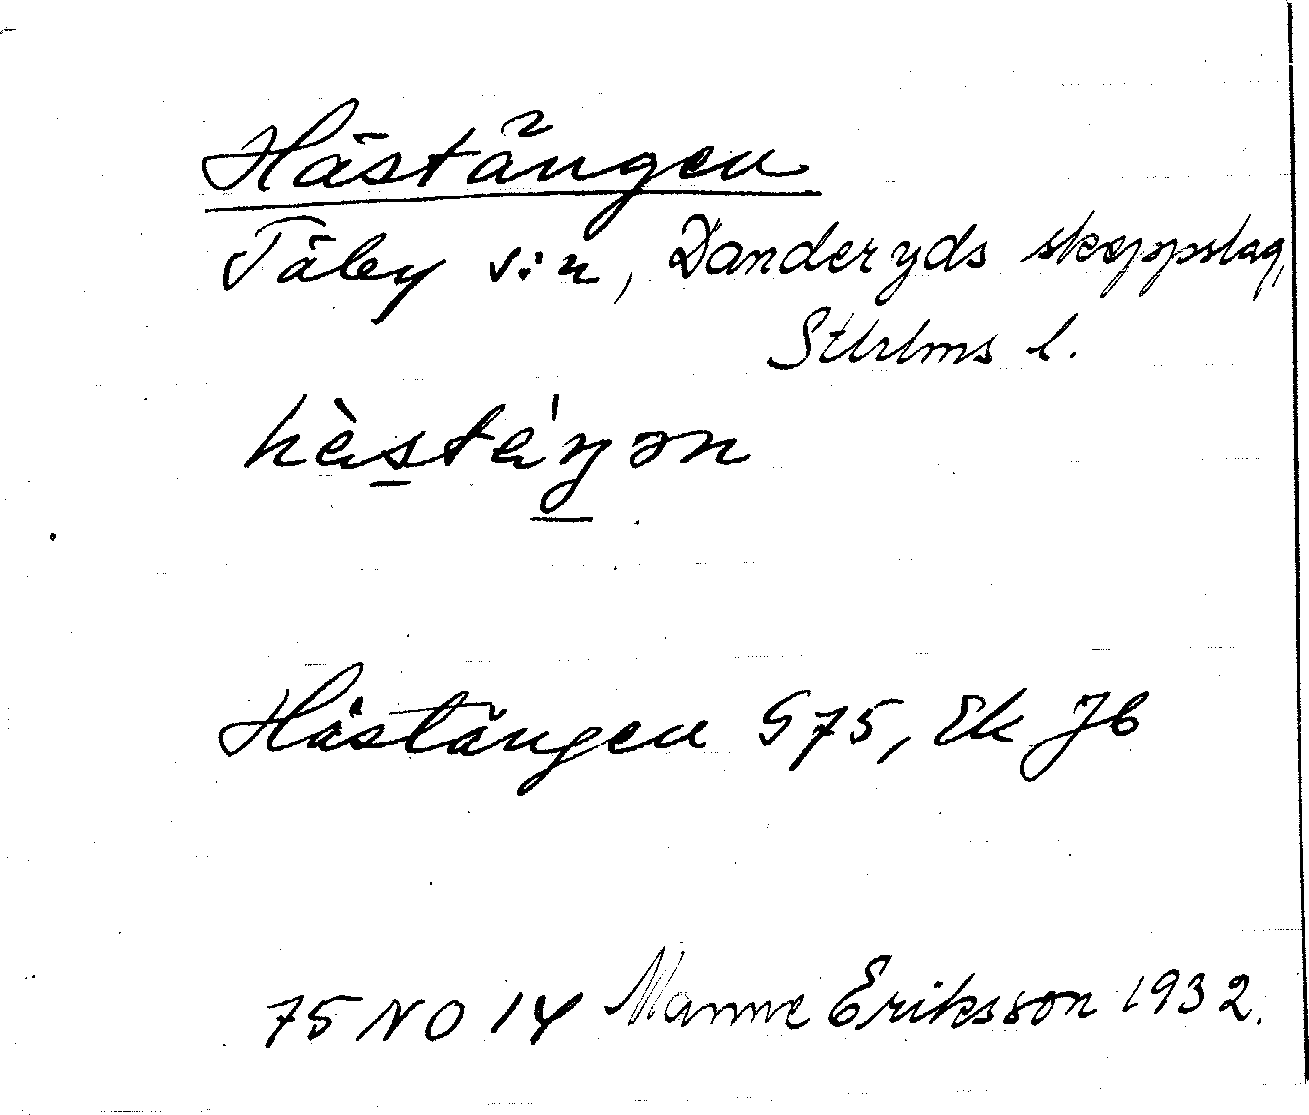 Hästängen
Täby s:n, Danderyds skeppslag,
Sthlms l.
hàstáŋən
Hästängen G75, Ek Jb
75 NO 14 Manne Eriksson 1932.